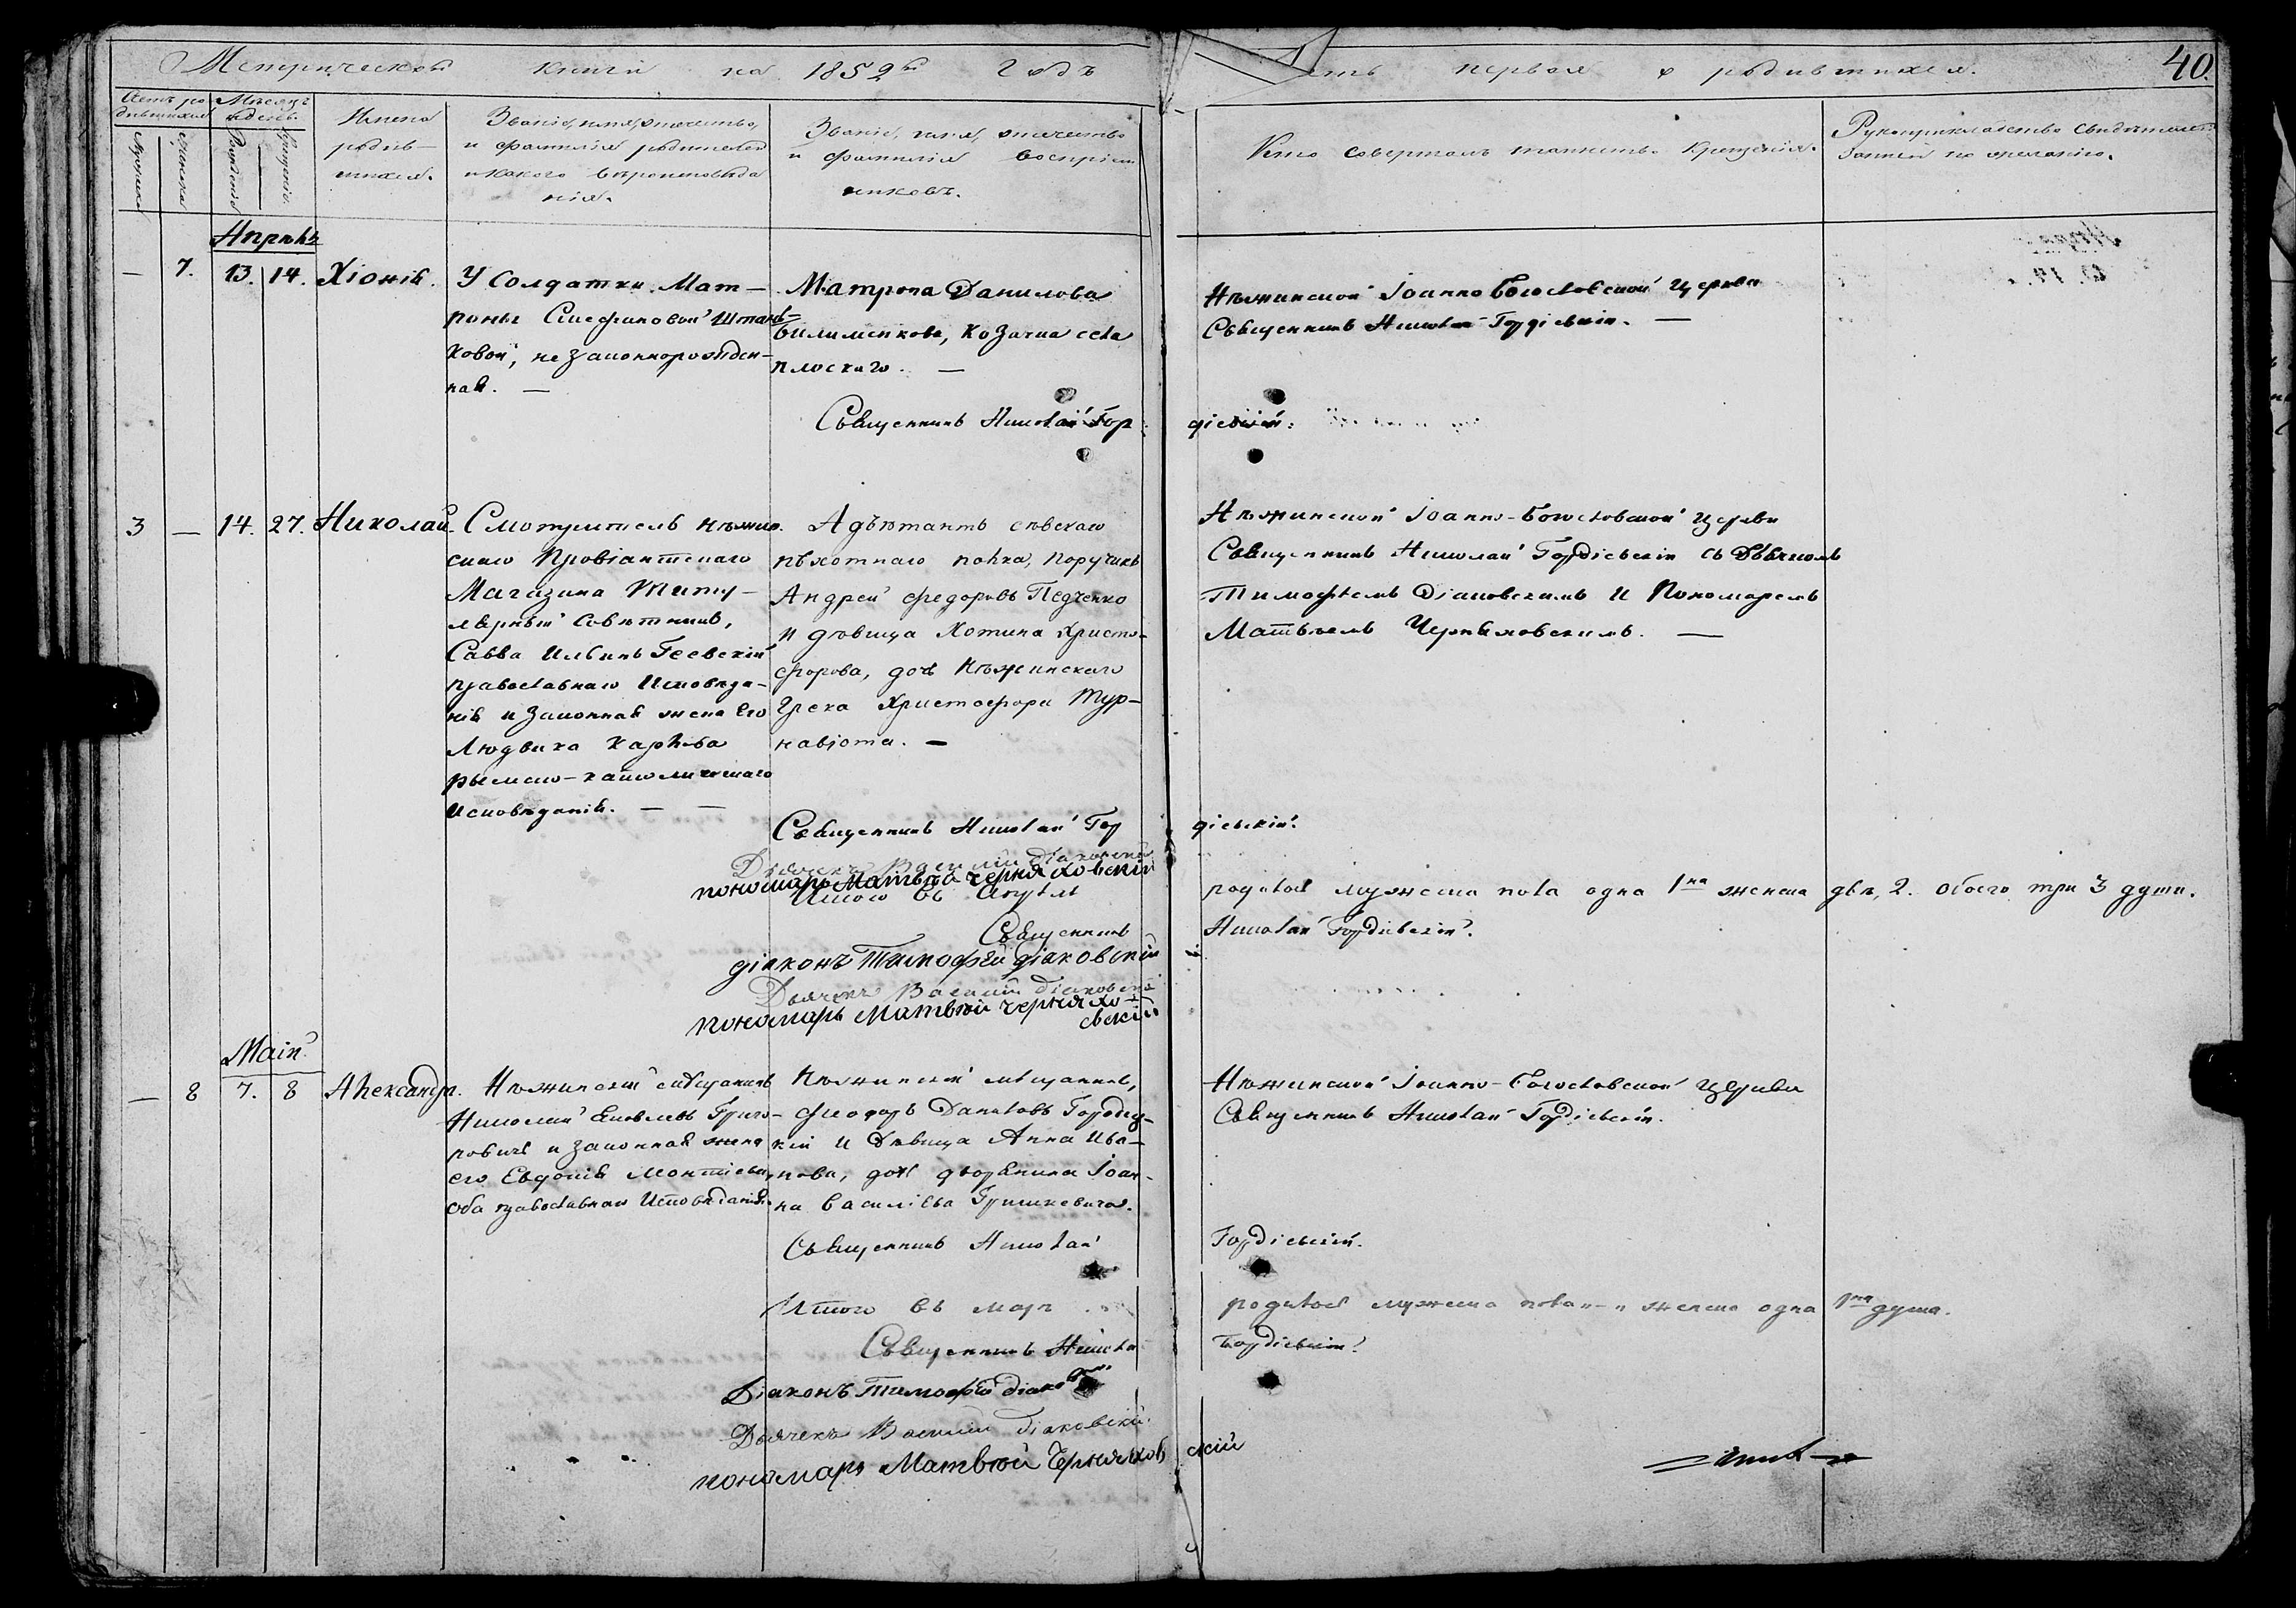 Метрической книги на 1852й годъ
часть первая о родившихся.
40.
Счетъ родившихся
Мужеска
Женска
Мѣсяцъ и день
Рожденія
Крещенія.
Имена
родив-
шихся.
Званіе, имя, отчество,
и фамилія родителей
и какого вѣроисповѣда
нія.
Званіе, имя, отчество
и фамилія воспріем
никовъ.
Кто совершалъ таинство крещенія.
Рукоприкладство свидѣтелей
записи по желанію.
Апрѣль
— 7. 13. 14. Хіонія.
У Солдатки Мат-
роны Стефановой Штань-
ковой, незаконнорожден-
ная. —
Матрона Данилова
Билименкова, козачка села
плоскаго. —
Нѣжинской Іоанно Богословской церкви
Священникъ Николай Гордіевскій. —
Священникъ Николай Гор
діевскій.
3 — 14. 27. Николай
Смотритель нѣжин
скаго Провіантскаго
Магазина Титу-
лярный Совѣтникъ,
Савва Ильинъ Геевскій
православнаго Исповѣда-
нія и законная жена его
Людвика Карлова
римско-католическаго
Исповѣданія. — —
Адъютантъ сѣвскаго
пѣхотнаго полка, поручикъ
Андрей Федоровъ Педченко
и дѣвица Хотина Христо-
форова, дочь Нѣжинскаго
Грека Христофора Тур-
навіота. —
Нѣжинской Іоанно-Богословской церкви
Священникъ Николай Гордіевскій съ Дьячкомъ
Тимофѣемъ Діаковскимъ и Пономаремъ
Матвѣемъ Черняховскимъ. —
Священникъ Николай Гор
діевскій.
Дьячекъ Василій Діаковскій
пономарь Матвѣй черняховскій
Итого въ Апрѣлѣ
родилось мужеска пола одна 1на женска двѣ, 2. обоего три 3 души.
Священникъ
Николай Гордіевскій.
діаконъ Тимофѣй діаковскій
Дьячекъ Василій Діаковскій
пономарь Матвѣй черняхо-
вскій
Маій
— 8 7. 8 Александра.
Нѣжинскій мѣщанинъ
Николай Яковлевъ Григо-
ровичъ и законная жена
его Евдокія Монтіева,
оба православнаго Исповѣданія.
Нѣжинскій мѣщанинъ,
Феодоръ Даниловъ Городец-
кій и Дѣвица Анна Ива-
нова, дочь дворянина Іоан-
на Василіева Гришкевича.
Нѣжинской Іоанно-Богословской церкви
Священникъ Николай Гордіевскій.
Священникъ Николай
Гордіевскій.
Итого въ маѣ
родилось мужеска пола — и женска одна 1на душа.
Священникъ Николай
Гордіевскій.
Діаконъ Тимофѣй діаков
Дьячекъ Василій Діаковскій
пономарь Матвѣй Черняхов
скій